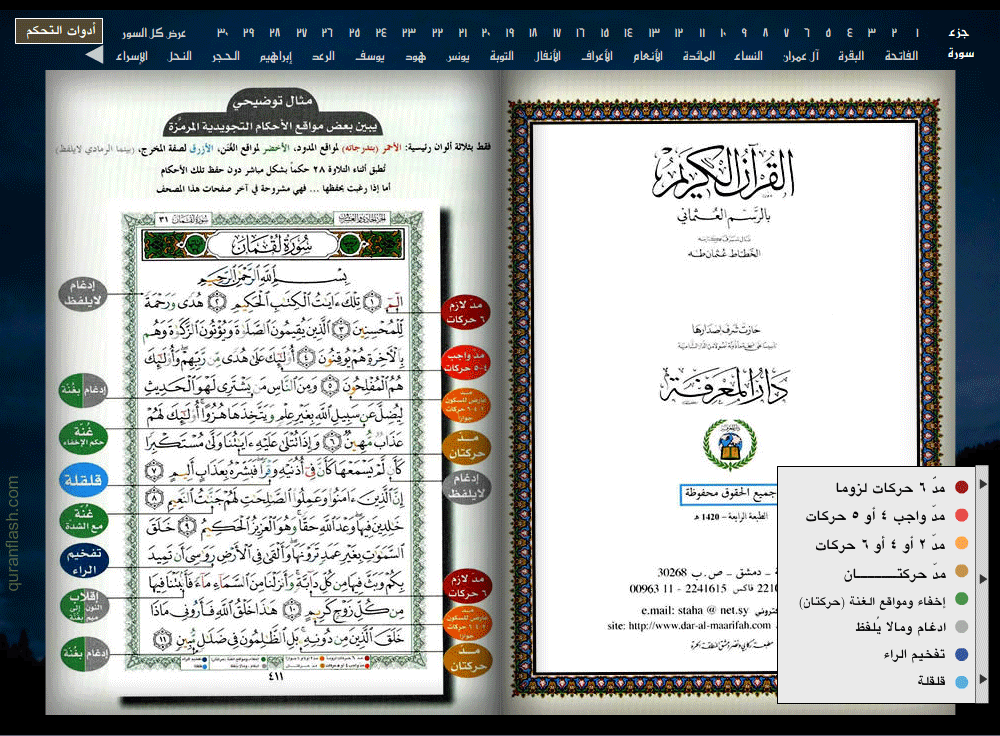 أدوات التحكم
جزء ١ ٢ ٣ ٤ ٥ ٦ ٧ ٨ ٩ ١٠ ١١ ١٢ ١٣ ١٤ ١٥ ١٦ ١٧ ١٨ ١٩ ٢٠ ٢١ ٢٢ ٢٣ ٢٤ ٢٥ ٢٦ ٢٧ ٢٨ ٢٩ ٣٠ عرض كل السور
سورة الفاتحة البقرة آل عمران النساء المائدة الأنعام الأعراف الأنفال التوبة يونس هود يوسف الرعد إبراهيم الحجر النحل الإسراء
القرآن الكريم
بالرسم العثماني
الخطاط عثمان طه
حازت شرف إصدارها
دار المعرفة
جميع الحقوق محفوظة
الطبعة الرابعة - 1420 هـ
- دمشق - ص.ب 30268
فاكس 2241615 - 11 00963
e.mail: staha @ net.sy
site: http://www.dar-al-maarifah.com
مدّ ٦ حركات لزوما
مدّ واجب ٤ أو ٥ حركات
مدّ ٢ أو ٤ أو ٦ حركات
مدّ حركتـــــــان
إخفاء ومواقع الغنة (حركتان)
ادغام ومالا يُلفظ
تفخيم الراء
قلقلة
مثال توضيحي
يبين بعض مواقع الأحكام التجويدية المرمزة
فقط بثلاثة ألوان رئيسية: الأحمر (بتدرجاته) لمواقع المدود، الأخضر لمواقع الغنن، الأزرق لصفة المخرج، (بينما الرمادي لايلفظ)
تُطبق أثناء التلاوة ٢٨ حكماً بشكل مباشر دون حفظ تلك الأحكام
أما إذا رغبت بحفظها ... فهي مشروحة في آخر صفحات هذا المصحف
سورة لقمان ٣١
سورة لقمان
بسم الله الرحمن الرحيم
الٓمٓ ١ تِلْكَ ءَايَٰتُ الْكِتَٰبِ الْحَكِيمِ ٢ هُدًى وَرَحْمَةً
لِّلْمُحْسِنِينَ ٣ الَّذِينَ يُقِيمُونَ الصَّلَوٰةَ وَيُؤْتُونَ الزَّكَوٰةَ وَهُم
بِالْءَاخِرَةِ هُمْ يُوقِنُونَ ٤ أُو۟لَٰٓئِكَ عَلَىٰ هُدًى مِّن رَّبِّهِمْ وَأُو۟لَٰٓئِكَ
هُمُ الْمُفْلِحُونَ ٥ وَمِنَ النَّاسِ مَن يَشْتَرِى لَهْوَ الْحَدِيثِ
لِيُضِلَّ عَن سَبِيلِ اللَّهِ بِغَيْرِ عِلْمٍ وَيَتَّخِذَهَا هُزُوًا أُو۟لَٰٓئِكَ لَهُمْ
عَذَابٌ مُّهِينٌ ٦ وَإِذَا تُتْلَىٰ عَلَيْهِ ءَايَٰتُنَا وَلَّىٰ مُسْتَكْبِرًا
كَأَن لَّمْ يَسْمَعْهَا كَأَنَّ فِىٓ أُذُنَيْهِ وَقْرًا فَبَشِّرْهُ بِعَذَابٍ أَلِيمٍ ٧
إِنَّ الَّذِينَ ءَامَنُوا۟ وَعَمِلُوا۟ الصَّٰلِحَٰتِ لَهُمْ جَنَّٰتُ النَّعِيمِ ٨
خَٰلِدِينَ فِيهَا وَعْدَ اللَّهِ حَقًّا وَهُوَ الْعَزِيزُ الْحَكِيمُ ٩ خَلَقَ
السَّمَٰوَٰتِ بِغَيْرِ عَمَدٍ تَرَوْنَهَا وَأَلْقَىٰ فِى الْأَرْضِ رَوَٰسِىَ أَن تَمِيدَ
بِكُمْ وَبَثَّ فِيهَا مِن كُلِّ دَآبَّةٍ وَأَنزَلْنَا مِنَ السَّمَآءِ مَآءً فَأَنۢبَتْنَا فِيهَا
مِن كُلِّ زَوْجٍ كَرِيمٍ ١٠ هَٰذَا خَلْقُ اللَّهِ فَأَرُونِى مَاذَا
خَلَقَ الَّذِينَ مِن دُونِهِ بَلِ الظَّٰلِمُونَ فِى ضَلَٰلٍ مُّبِينٍ ١١
٤١١
مدّ لازم ٦ حركات
مدّ واجب ٤-٥ حركات
مدّ عارض للسكون ٢-٤-٦ حركات جوازاً
مدّ حركتان
إدغام لايلفظ
مدّ لازم ٦ حركات
مدّ عارض للسكون ٢-٤-٦ حركات جوازاً
مدّ حركتان
إدغام لايلفظ
إدغام بغنة
غنّة حكم الإخفاء
قلقلة
غنّة مع الشدة
تفخيم الراء
إقلاب النون إلى ميم بغنة
إدغام بغنة
quranflash.com